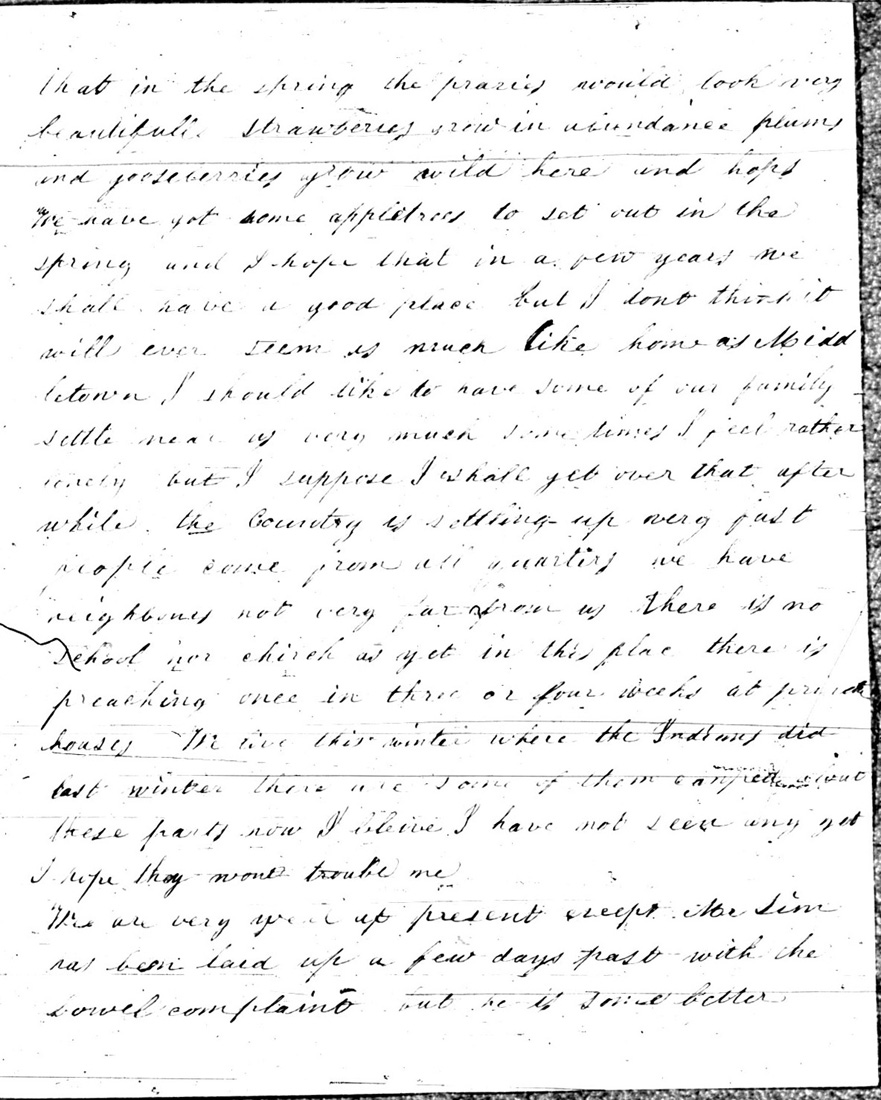 that in the spring the praries would look very
beautifull strawberies grow in abundance plums
and gooseberries grow wild here and hops
We have got some appletrees to set out in the
spring and I hope that in a few years we
shall have a good place but I dont think it
will ever seem as much like home as Midd
letown I should like to have some of our family
settle near us very much some times I feel rather
lonely but I suppose I shall get over that after
while the Country is settling up very fast
people come from all quarters we have
neighbours not very far from us there is no
School nor chirch as yet in this place there is
preaching once in three or four weeks at private
houses We live this winter where the Indians did
last winter there are some of them camped about
these parts now I bleive I have not seen any yet
I hope they wont trouble me
We are very well at present except Mr Sim
has been laid up a few days past with the
bowel complaint but he is some better